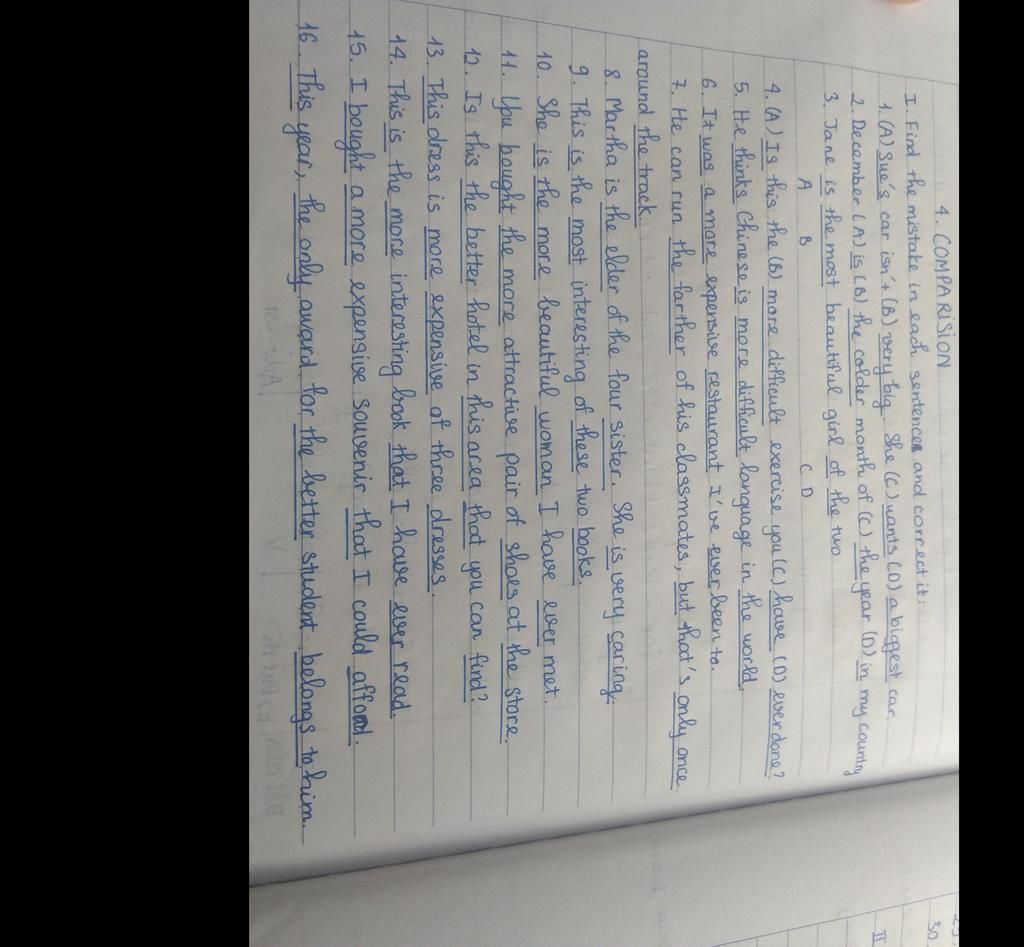 4. COMPARISION
I. Find the mistake in each sentences and correct it:
1. (A) Sue's car isn't (B) very big. She (C) wants (D) a biggest car.
2. December (A) is (B) the colder month of (C) the year (D) in my country
3. Jane is the most beautiful girl of the two
A B C D
4. (A) Is this the (B) more difficult exercise you (C) have (D) ever done?
5. He thinks Chinese is more difficult language in the world.
6. It was a more expensive restaurant I've ever been to.
7. He can run the farther of his classmates, but that's only once
around the track.
8. Martha is the elder of the four sister. She is very caring.
9. This is the most interesting of these two books.
10. She is the more beautiful woman I have ever met.
11. You bought the more attractive pair of shoes at the store.
12. Is this the better hotel in this area that you can find?
13. This dress is more expensive of three dresses.
14. This is the more interesting book that I have ever read.
15. I bought a more expensive souvenir that I could afford.
16. This year, the only award for the better student belongs to him.
30
II